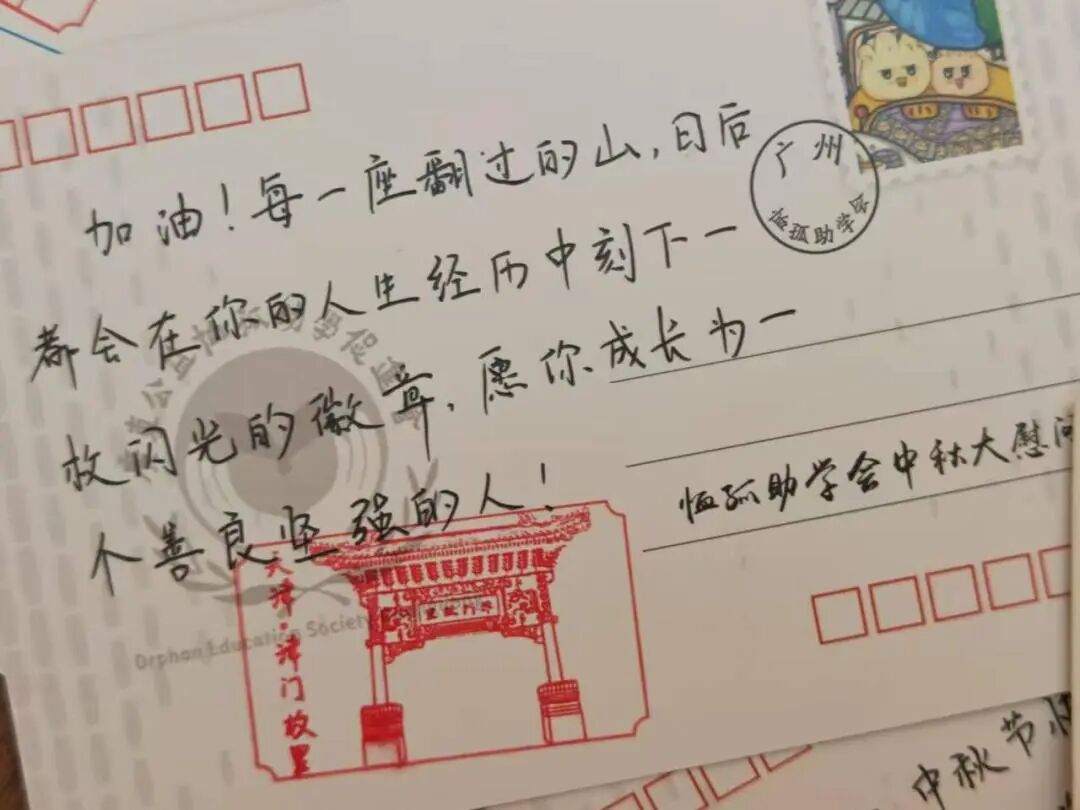 加油！每一座翻过的山，日后
都会在你的人生经历中刻下一
枚闪光的徽章，愿你成长为一
个善良坚强的人！
广州
恤孤助学会
恤孤助学会中秋大慰问
天津·津门故里
Orphan Education Society
中秋节